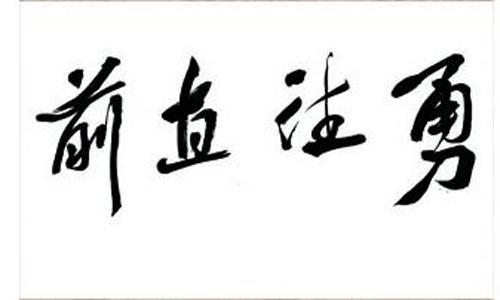 勇往直前